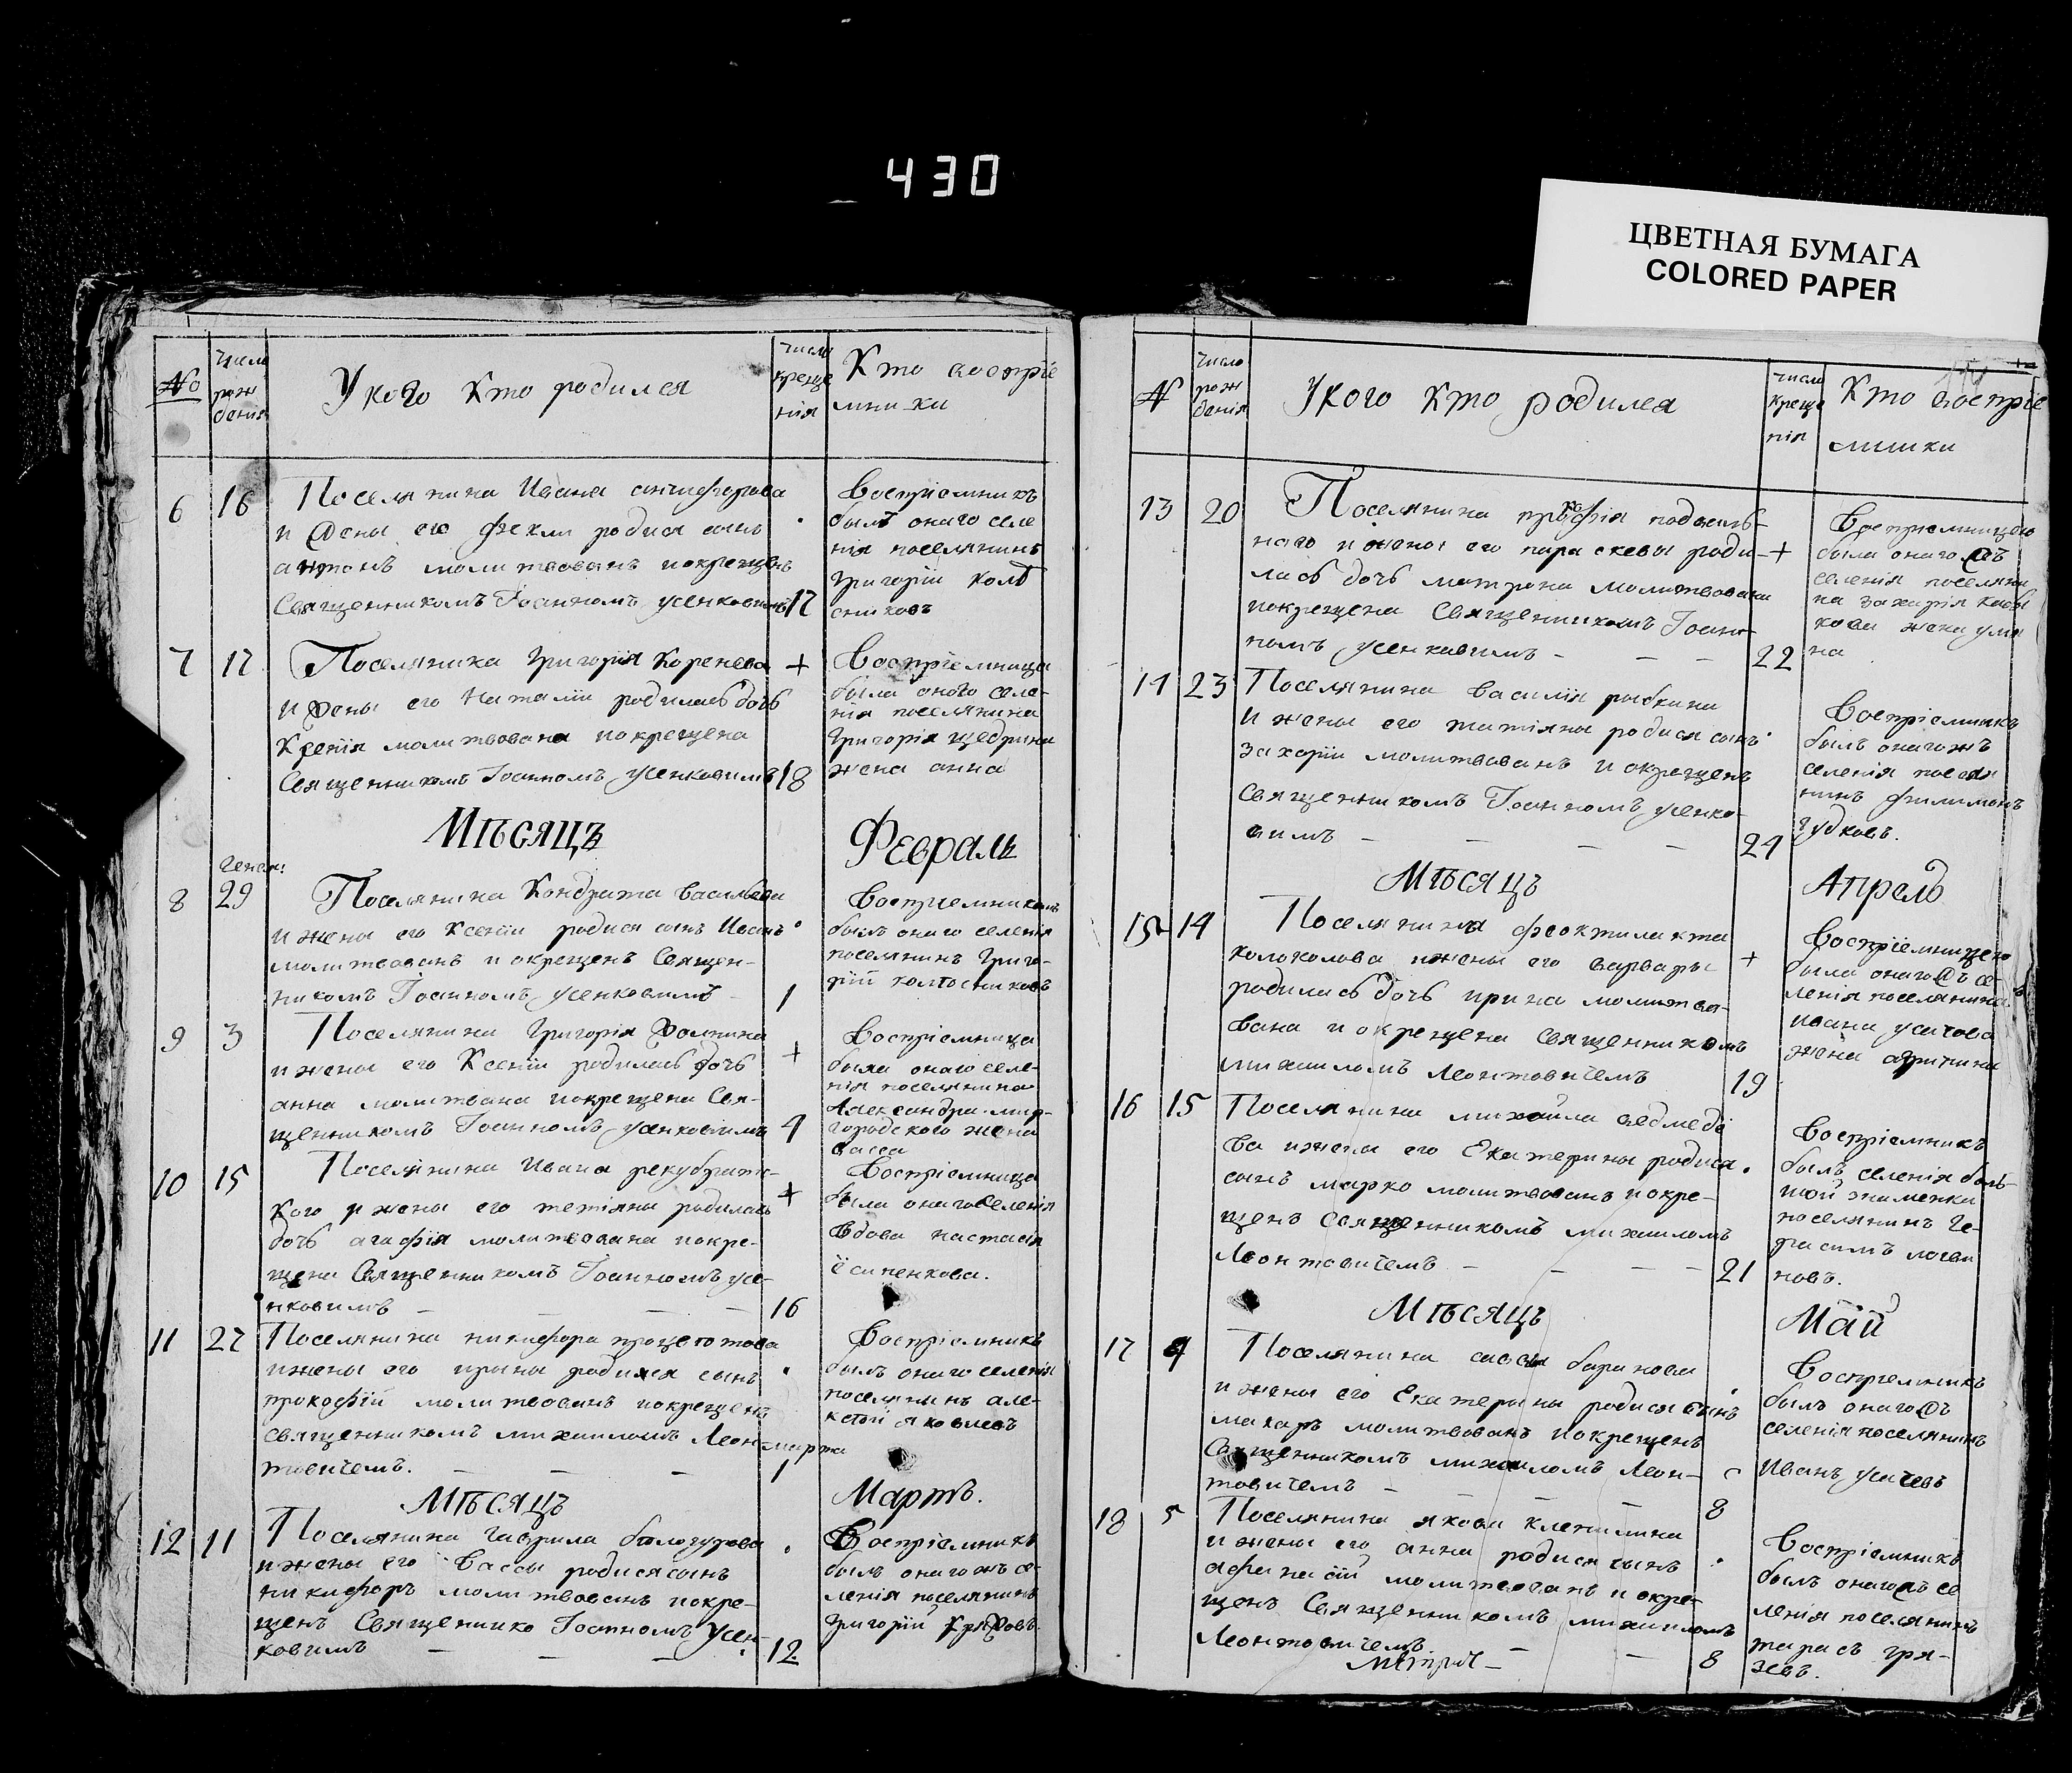 430
ЦВЕТНАЯ БУМАГА
COLORED PAPER
№
число рож дения
У кого Кто родился
число креще нія
Кто воспріе
мники
6 16 Поселянина Ивана анциферова
и жены его феклы родися сынъ
антонъ молитвованъ и крещенъ
Священникомъ Іоанномъ усенковимъ 17
Воспріемникъ
былъ онаго селе
нія поселянинъ
Григорій колт
сниковъ
7 17 Поселянина Григорія Коренева +
и жены его Наталіи родилась дочь
Ксенія молитвована и крещена
Священникомъ Іоанномъ усенковимъ 18
Воспріемница
была оного селе-
нія поселянина
Григорія щедрина
жена анна
Мѣсяцъ Февраль
Генва:
8 29 Поселянина Кондрата васильева
и жены его Ксеніи родися сынъ Иванъ
молитвованъ и окрещенъ Священ-
никомъ Іоанномъ усенковимъ 1
Воспріемникомъ
былъ онаго селенія
поселянинъ Григо-
рій колтосниковъ
9 3 Поселянина Григорія Фомина
и жены его Ксеніи родилась дочь +
анна молитвана и крещена Свя-
щенникомъ Іоанномъ усенковимъ 4
Воспріемница
была онаго селе-
нія поселянина
Александра мир-
городского жена
васса
10 15 Поселянина Ивана рекубратс-
кого и жены его тетіяны родилась +
дочь агафія молитвована и окре-
щена Священникомъ Іоанномъ усе-
нковимъ — — — 16
Воспріемница
была онаго Селенія
вдова настасія
есипенкова.
11 27 Поселянина никифора
и жены его ирины родился сынъ
прокофій молитвованъ и крещенъ
священникомъ михаиломъ Леон- марта
товичемъ. — — — 1
Воспріемникъ
былъ онаго селенія
поселянинъ але-
ксѣй яковлевъ
Мѣсяцъ Мартъ.
12 11 Поселянина гаврила балогурова
и жены его Вассы родися сынъ
никифоръ молитвованъ и окре-
щенъ Священнико Іоанномъ Усен-
ковимъ — — — 12
Воспріемникъ
былъ онаго жъ се-
ленія поселянинъ
Григорій
№
число рож денія
У кого Кто родился
число креще нія
Кто воспріе
мники
13 20 Поселянина прокофія
наго и жены его параскевы роди- +
лась дочь матрона молитвована
и окрещена Священникомъ Іоан-
номъ усенковимъ — — — 22
Воспріемницею
была онаго жъ
селенія поселяни
на захарія
кова жена улия
на
14 23 Поселянина василія рыбкина
и жены его татіяны родися сынъ
захарій молитвованъ и окрещенъ
Священникомъ Іоанномъ усенко-
вимъ — — — 24
Воспріемникъ
былъ онаго жъ
селенія поселя
нинъ филимонъ
гудковъ.
Мѣсяцъ Апрель
15 14 Поселянина феоктилакта
колоколова и жены его варвары +
родилась дочь ирина молитво-
вана и окрещена Священникомъ
михаиломъ Леонтовичемъ 19
Воспріемницею
была онаго жъ се-
ленія поселянина
ивана усачова
жена
16 15 Поселянина михаила ведмеде
ва и жены его Екатерины родися
сынъ марко молитвованъ и окре-
щенъ Священникомъ михаиломъ
Леонтовичемъ — — — 21
Воспріемникъ
былъ селенія боль-
шой знаменки
поселянинъ Ге-
расимъ логви
новъ.
Мѣсяцъ Май
17 4 Поселянина савы баранова
и жены его Екатерины родися сынъ
макаръ молитвованъ и окрещенъ
Священникомъ михаиломъ Леон-
товичемъ — — — 8
Воспріемникъ
былъ онаго жъ
селенія поселянинъ
Иванъ усачевъ
18 5 Поселянина якова клепинина
и жены его анна родися сынъ
афанасій молитвованъ и окре-
щенъ Священникомъ михаиломъ
Леонтовичемъ. — — 8
Воспріемникъ
былъ онаго жъ се
ленія поселянинъ
тарасъ гря-
зевъ.